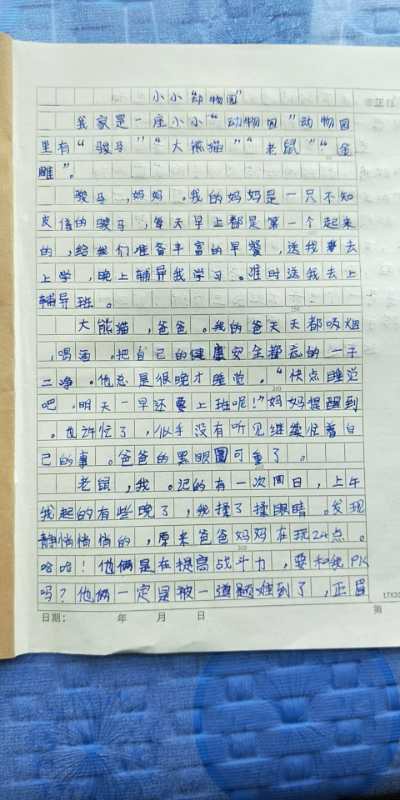 小小“动物园”
我家是一座小小“动物园”动物园
里有“骏马”“大熊猫”“老鼠”“金
雕”。
骏马,妈妈。我的妈妈是一只不知
皮倦的骏马,每天早上都是第一个起来
的,给我们准备丰富的早餐,送我去
上学,晚上辅导我学习。准时送我去上
辅导班。
大熊猫,爸爸。我的爸天天都吸烟
,喝酒。把自己的健康安全撞忘的一干
二净。他总是很晚才睡觉。“快点睡觉
吧,明天一早还要上班呢!”妈妈提醒到
。也许忙了,似乎没有听见继续忙着自
己的事。爸爸的黑眼圈可重了。
老鼠,我。记的有一次周日,上午
我起的有些晚了,我揉了揉眼睛。发现
静悄悄悄的,原来爸爸妈妈在玩24点。
哈哈!他俩是在提高战斗力,要和我PK
吗?他俩一定是被一道题难到了,正眉
日期: 年 月 日 第